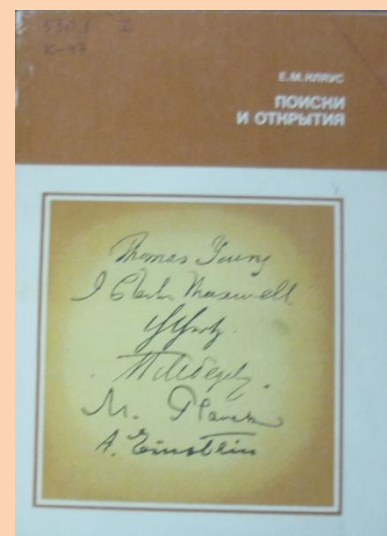 530.1
К-47
Е.М.КЛЯУС
ПОИСКИ
И ОТКРЫТИЯ
Thomas Young
J Clerk Maxwell
М. Planck
A. Einstein